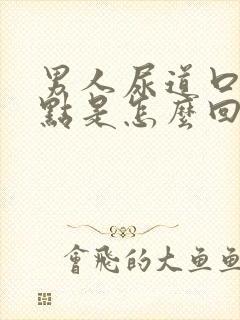 男人尿道口
點是怎麼回
會飛的大魚魚